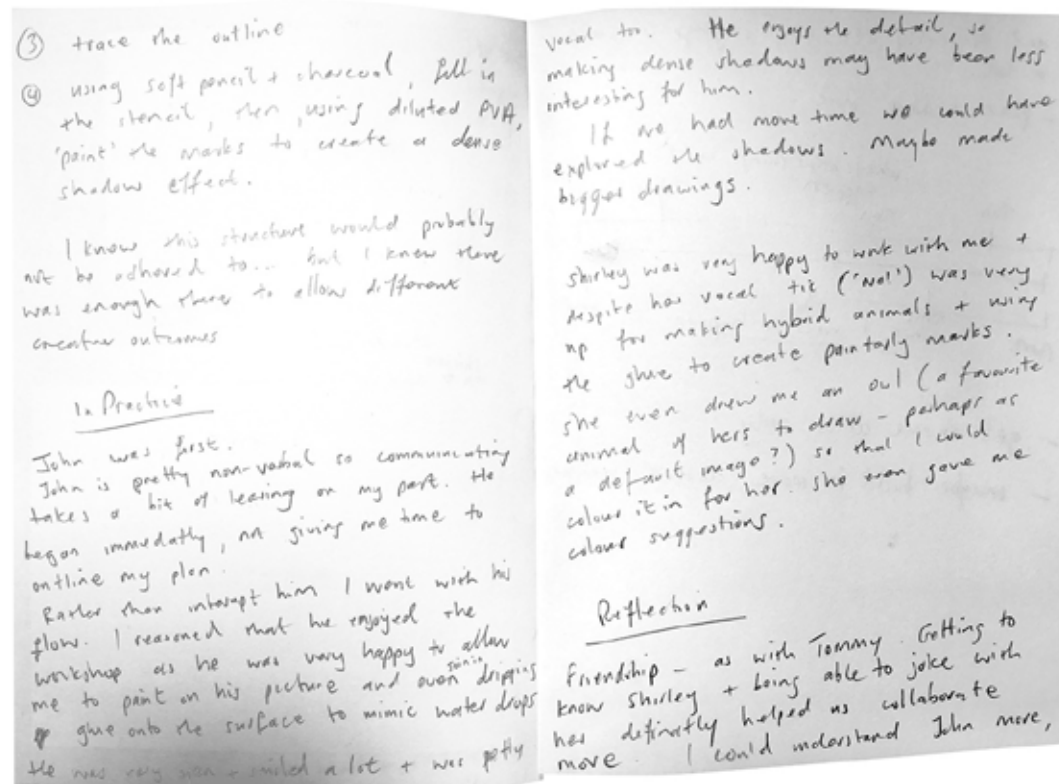 ③ trace the outline
④ using soft pencil + charcoal, fill in
the stencil, then, using diluted PVA,
'paint' the marks to create a dense
shadow effect.
I know this structure would probably
not be adhered to... but I knew there
was enough there to allow different
creative outcomes
In Practice
John was first.
John is pretty non-verbal so communicating
takes a bit of learing on my part. He
began immedatly, not giving me time to
outline my plan.
Rather than interupt him I went with his
flow. I reasoned that he enjoyed the
workshop as he was very happy to allow
me to paint on his picture and even dripping
glue onto the surface to mimic water drops
He was very + smiled a lot + was pretty
vocal too. He enjoys the detail, so
making dense shadows may have been less
interesting for him.
If we had more time we could have
explored the shadows. Maybe made
bigger drawings.
Shirley was very happy to work with me +
despite her vocal tic ("No!") was very
up for making hybrid animals + using
the glue to create painterly marks.
She even drew me an owl (a favourite
animal of hers to draw – perhaps as
a default image?) so that I could
colour it in for her. She even gave me
colour suggestions.
Reflection
Friendship – as with Tommy. Getting to
know Shirley + being able to joke with
her definatly helped us collaborate
more. I could understand John more,